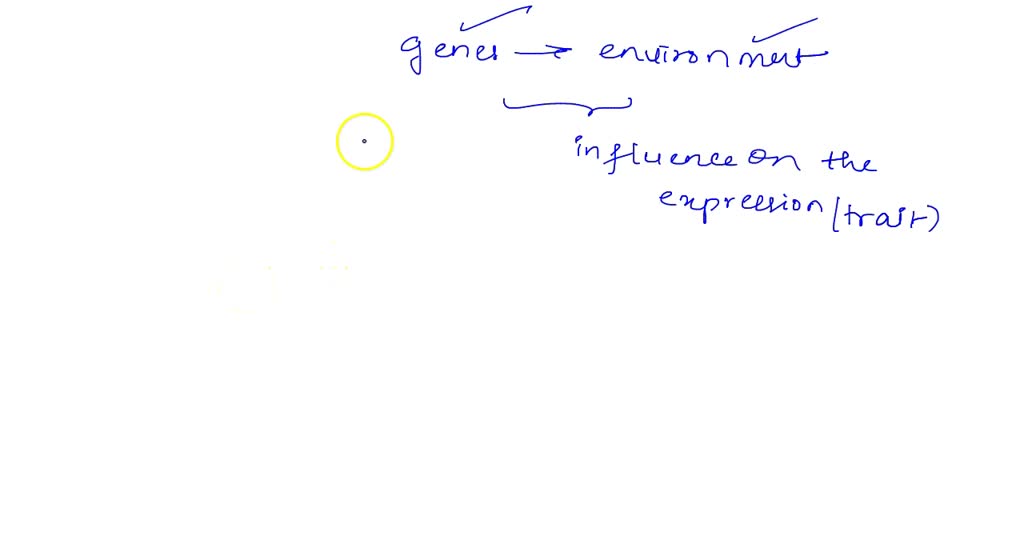 genes → environment
influence on the
expression (trait)